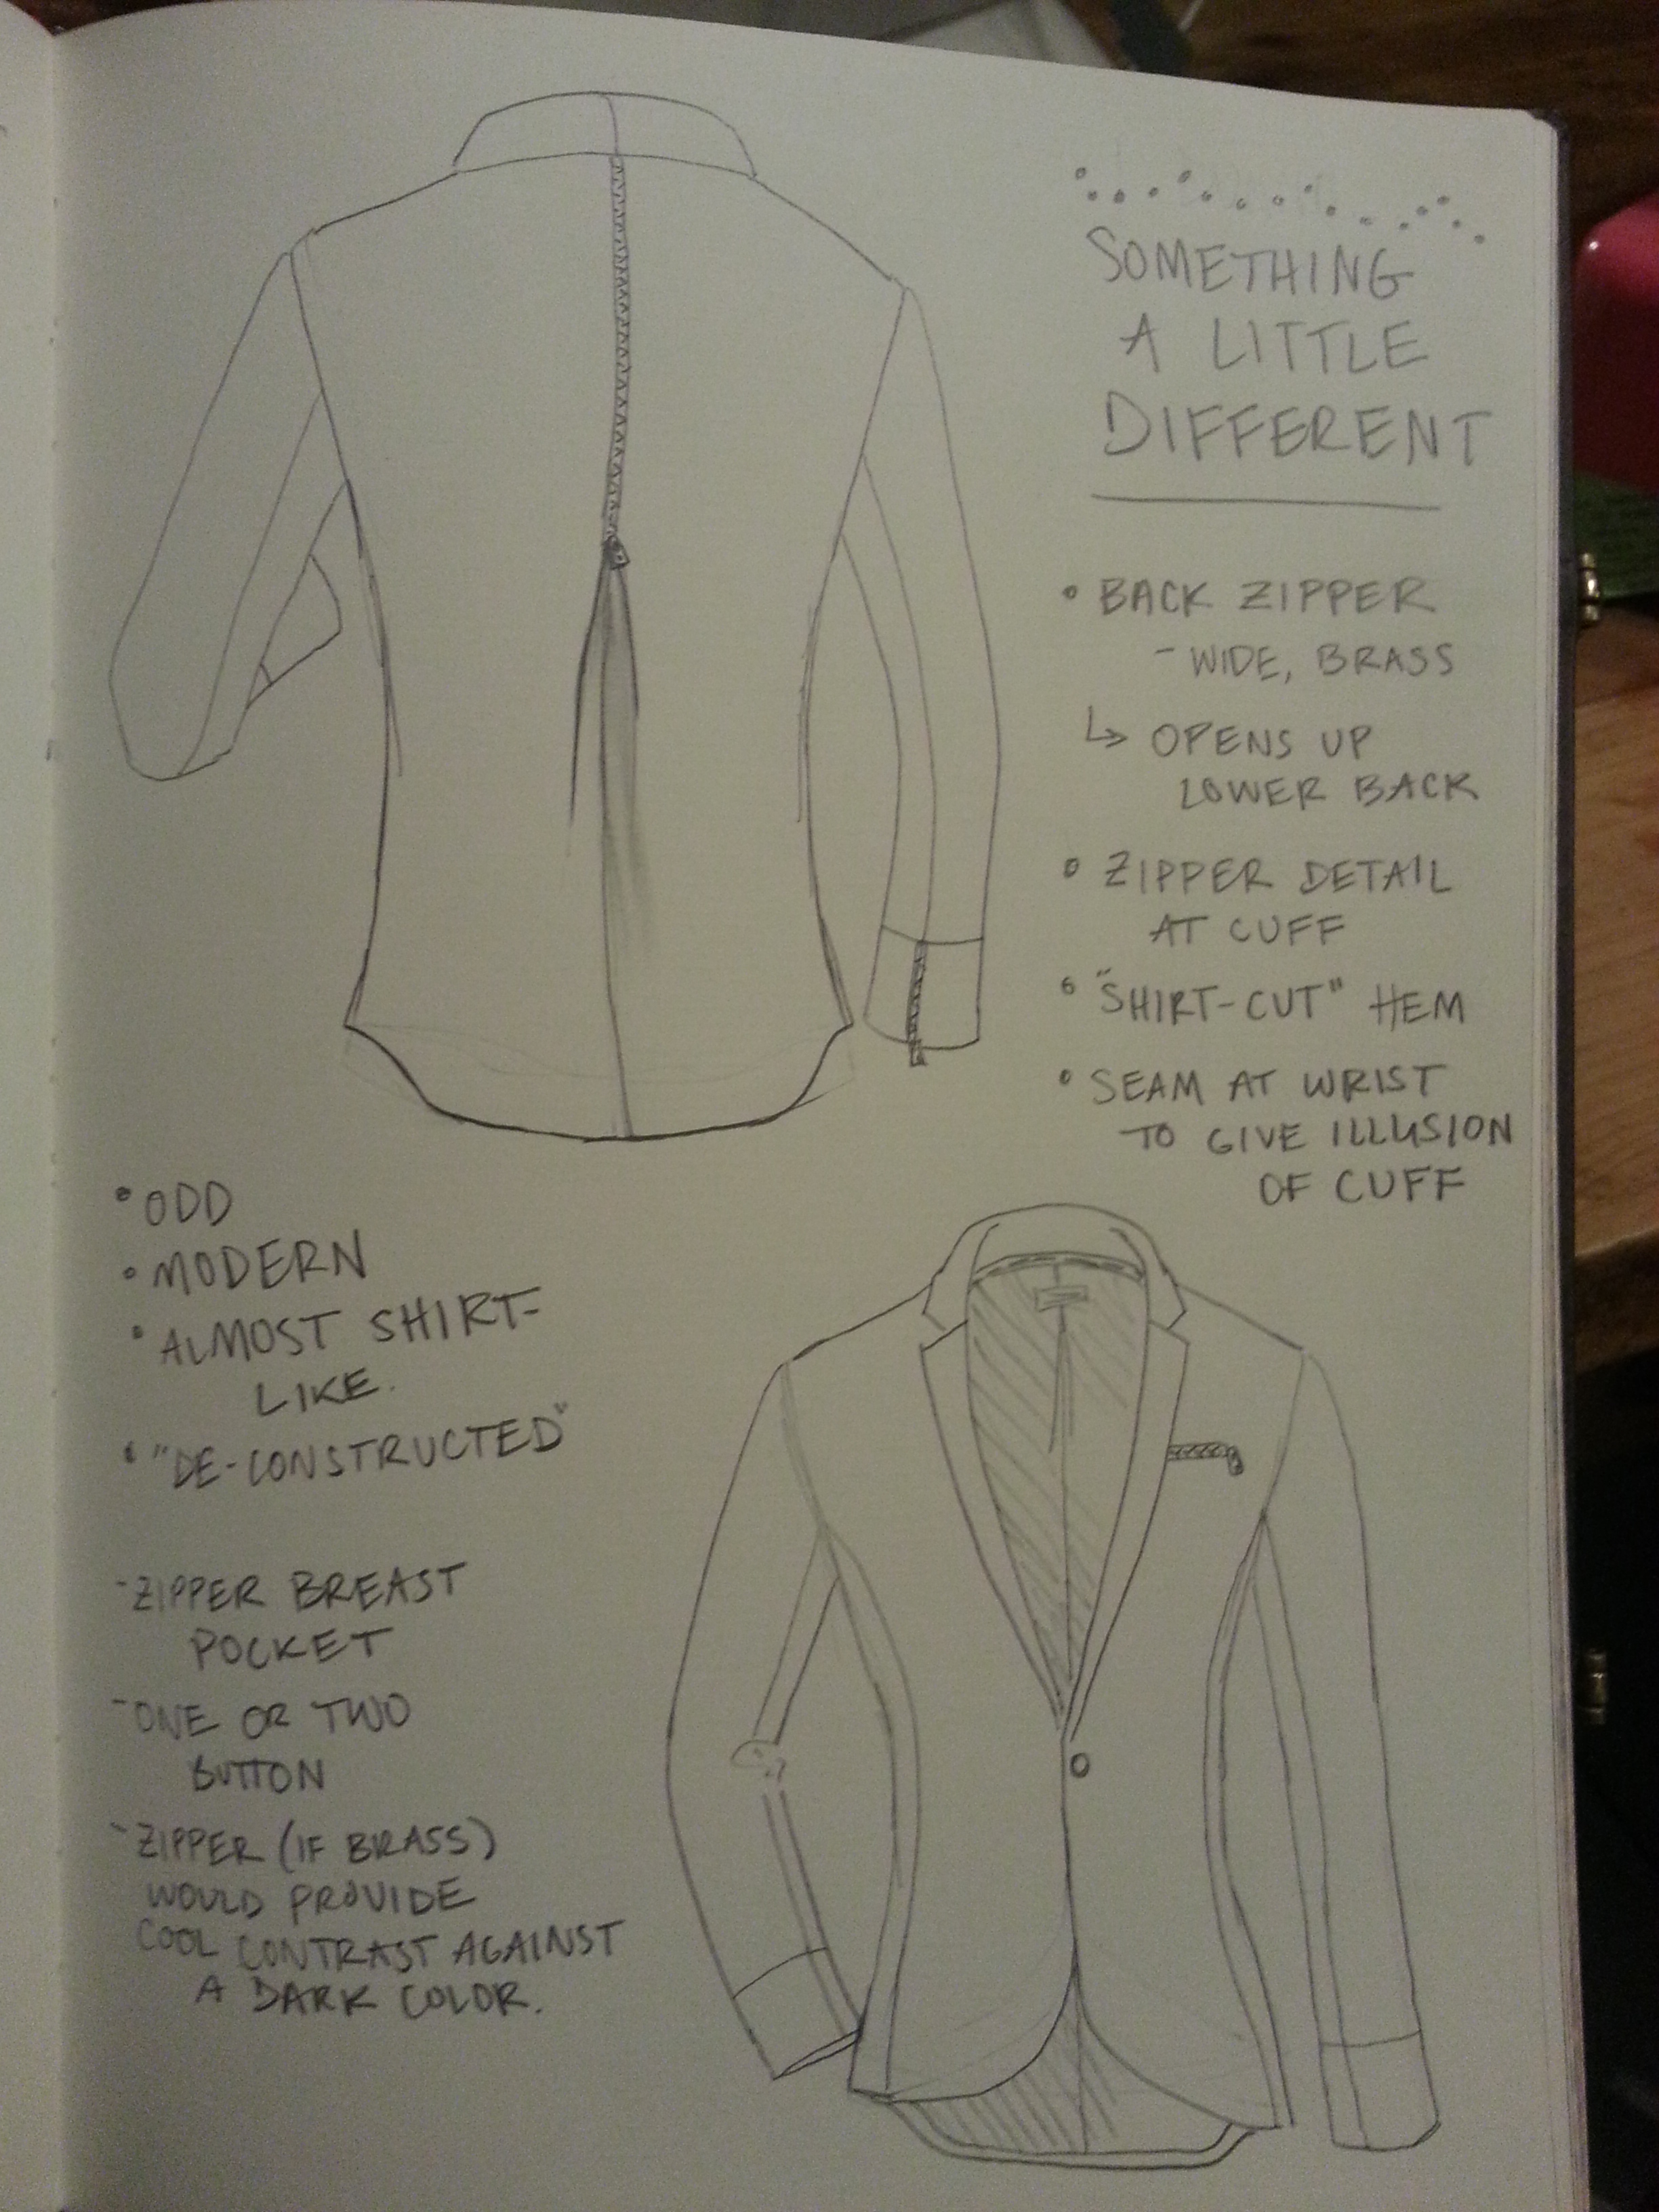 SOMETHING
A LITTLE
DIFFERENT
• BACK ZIPPER
- WIDE, BRASS
↳ OPENS UP
LOWER BACK
• ZIPPER DETAIL
AT CUFF
• "SHIRT-CUT" HEM
• SEAM AT WRIST
TO GIVE ILLUSION
OF CUFF
• ODD
• MODERN
• ALMOST SHIRT-
LIKE.
• "DE-CONSTRUCTED"
- ZIPPER BREAST
POCKET
- ONE OR TWO
BUTTON
- ZIPPER (IF BRASS)
WOULD PROVIDE
COOL CONTRAST AGAINST
A DARK COLOR.